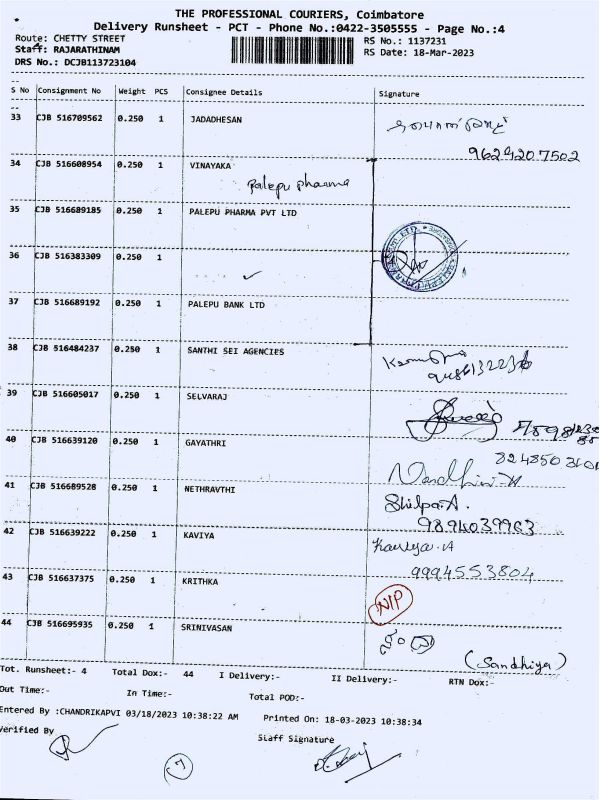 THE PROFESSIONAL COURIERS, Coimbatore
Delivery Runsheet - PCT - Phone No.:0422-3505555 - Page No.:4
Route: CHETTY STREET
RS No.: 1137231
Staff: RAJARATHINAM
RS Date: 18-Mar-2023
DRS No.: DCJB113723104
S No Consignment No Weight PCS Consignee Details Signature
33 CJB 516709562 0.250 1 JADADHESAN
9624207502
34 CJB 516608954 0.250 1 VINAYAKA
Palepu pharma
35 CJB 516689185 0.250 1 PALEPU PHARMA PVT LTD
36 CJB 516383309 0.250 1
37 CJB 516689192 0.250 1 PALEPU BANK LTD
38 CJB 516484237 0.250 1 SANTHI SEI AGENCIES
39 CJB 516605017 0.250 1 SELVARAJ
40 CJB 516639120 0.250 1 GAYATHRI
Nandhini
41 CJB 516689528 0.250 1 NETHRAVTHI
Shilpa.A.
9894039963
42 CJB 516639222 0.250 1 KAVIYA
Kavya.A
9994553804
43 CJB 516637375 0.250 1 KRITHKA
NIP
44 CJB 516695935 0.250 1 SRINIVASAN
(Sandhiya)
Tot. Runsheet:- 4 Total Dox:- 44 I Delivery:- II Delivery:- RTN Dox:-
Out Time:- In Time:- Total POD:-
Entered By :CHANDRIKAPVI 03/18/2023 10:38:22 AM Printed On: 18-03-2023 10:38:34
Verified By
Staff Signature
7